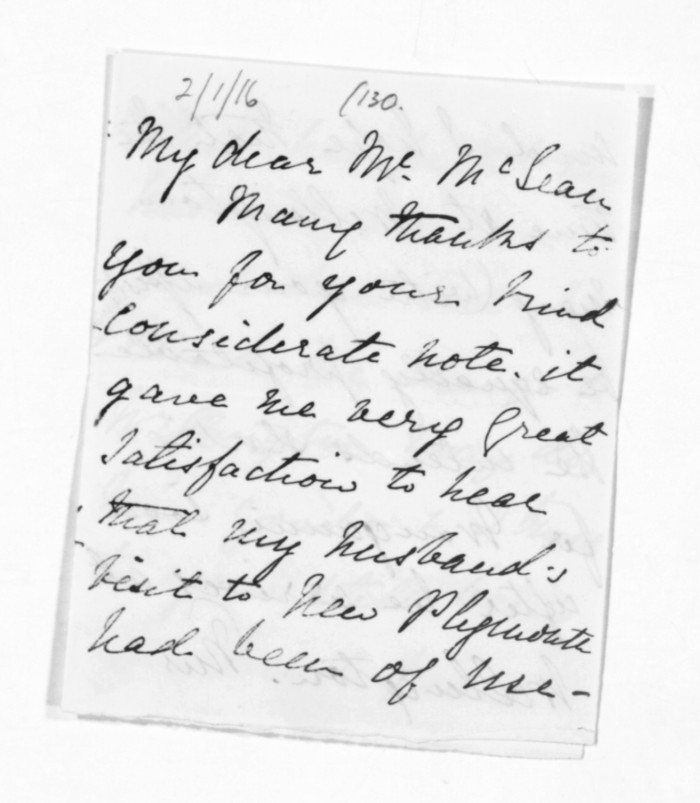 2/1/16 (130.
My dear Mr. McLean
Many thanks to
you for your kind
considerate note. it
gave me very great
satisfaction to hear
that my husband's
visit to New Plymouth
had been of use-